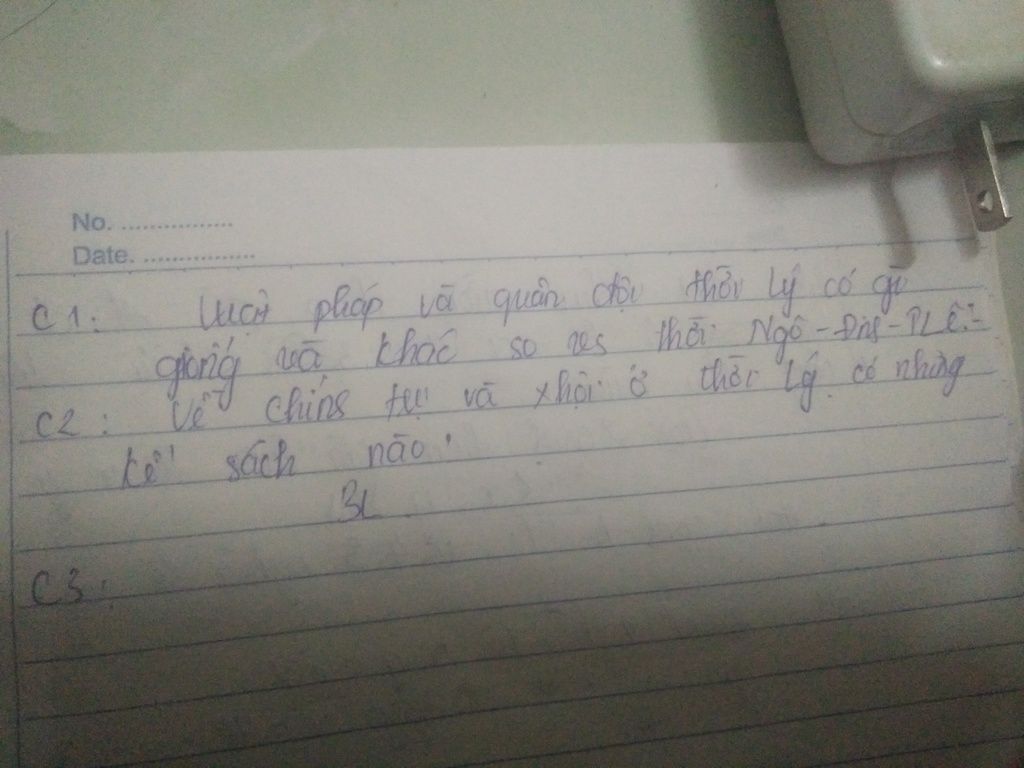 No. ................
Date. ................
C1: Luật pháp và quân đội thời Lý có gì
giống và khác so vs thời Ngô-Đinh-PLê:-
C2: Về chính trị và xhội ở thời Lý có những
kế sách nào.
3L
C3: